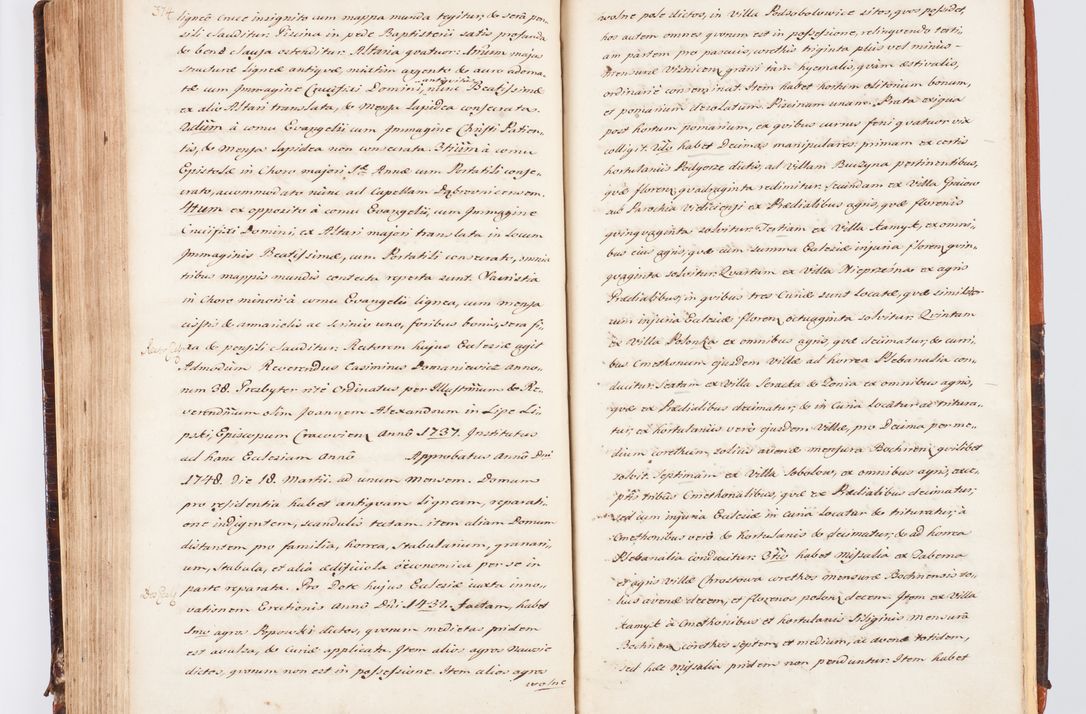 374
ligneô Cruce insignito cum mappa munda tegitur, & serâ pen-
sili clauditur. Piscina in pede Baptisterii satis profunda
& bene clausa ostenditur. Altaria quatuor: Unum majus
structuræ ligneæ antiquæ, mixtim argento & auro adorna-
antiquitus
tæ cum Immagine Crucifixi Domini, nunc Beatissimæ
ex alio Altari translata, & Mensa lapidea consecrata.
2dum à cornu Evangelii cum Immagine Christi Patien-
tis, & Mensa lapidea non consecrata. 3tium à cornu
Epistolæ in Choro majori S. Annæ cum Portatili conse-
crato, accommodato nunc ad Capellam Dąbroviensem.
4tum ex opposito à cornu Evangelii, cum Immagine
Crucifixi Domini, ex Altari majori translata in locum
Immaginis Beatissimæ, cum Portatili consecrato, omnia
tribus mappis mundis contecta reperta sunt. Sacristia
in Choro minori à cornu Evangelii lignea, cum mensa
cistis & armariolis ac scrinio uno, foribus bonis, sera fi-
xa & pensili clauditur. Rectorem hujus Ecclesiæ agit
Admodum Reverendus Casimirus Domaniewicz Anno-
rum 38. Presbyter ritè Ordinatus per Illustrissimum & Re-
verendissimum olim Joannem Alexandrum in Lipe Li-
pski, Episcopum Cracovien. Annô 1737. Institutus
ad hanc Ecclesiam Annô Approbatus Annô Dni
1748. Die 18. Martii. ad unum Mensem. Domum
pro residentia habet antiquam ligneam, reparati-
one indigentem, scandulis tectam. item aliam Domum
distantem pro familia, horrea, stabularium, granari-
um, stabula, et alia ædificiola œconomica per se in
parte reparata. Pro Dote hujus Ecclesiæ juxta inno-
vationem Erectionis Annô Dni 1437. factam, habet
Imo agros Popowski dictos, quorum medietas pridem
est avulsa, & Curiæ applicata. Item alios agros
dictos, quorum non est in possessione. Item alios agros
wolne
wolne pole dictos, in Villa Podsobolowice sitos, quos possidet,
hos autem omnes quorum est in possessione, relinquendo terti-
am partem pro pascuis, corethis triginta plus vel minus
mensuræ Visnicen. grani tam hyemalis, quàm æstivalis,
ordinariè conseminat. Item habet hortum olitorium bonum,
et pomarium desolatum. Piscinam unam. Prata exigua
post hortum pomarium, ex quibus currus feni quatuor vix
colligit. habet Decimas manipulares: primam ex certis
hortulanis Podgorze dictis, ad Villam Buczyna pertinentibus,
quæ florenis quadraginta redimitur. Secundam ex Villa
ab Parochia Vieliciensi ex Prædialibus agris, quæ florenis
quinquaginta solvitur. Tertiam ex Villa Xamyk, ex omni-
bus ejus agris, quæ cum summa Ecclesiæ injuria floren. quin-
quaginta solvitur. Quartam ex Villa Nieprzeina ex agris
Prædialibus, in quibus tres Curiæ sunt locatæ, quæ similiter
cum injuria Ecclesiæ floren. octuaginta solvitur. Quintam
ex Villa Polonka ex omnibus agris, quæ decimatur, & curri-
bus Cmethonum ejusdem Villæ ad horrea Plebanalia con-
ducitur. Sextam ex Villa Seracta & Zonia ex omnibus agris,
quæ ex Prædialibus decimatur, & in Curia locatur ac tritura-
tur, ex hortulanis verò ejusdem Villæ, pro Decima per me-
dium corethum, solius avenæ mensura Bochnen. quilibet
solvit. Septimam ex Villa Sobolow, ex omnibus agris, exce-
ptis tribus Cmethonalibus, quæ ex Prædialibus decimatur,
sed cum injuria Ecclesiæ in Curia locatur & trituratur, à
Cmethonibus verò & hortulanis & decimatur, & ad horrea
Plebanalia conducitur. 3tio habet Missalia ex Taberna
et agris Villæ Chrostowa corethos mensuræ Bochnensis to-
tius avenæ decem, et florenos polon. decem. Item ex Villa
Xamyk à Cmethonibus et hortulanis siliginis mensurâ
Bochnen. corethos septem et medium, ac avenæ totidem,
sed hæc missalia pridem non penduntur. Item habet